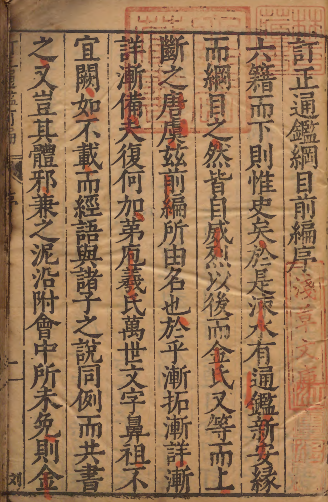 訂正通鑑綱目前編序
六籍而下則惟史矣於是涑水有通鑑新安緣
而綱目之然皆自威烈以後而金氏又等而上
斷之唐虞茲前編所由名也於乎漸拓漸詳漸
詳漸備夫復何加弟庖羲氏萬世文字鼻祖不
宜闕如不載而經語與諸子之說同例而共書
之又豈其體邪兼之泥沿附會中所未免則金